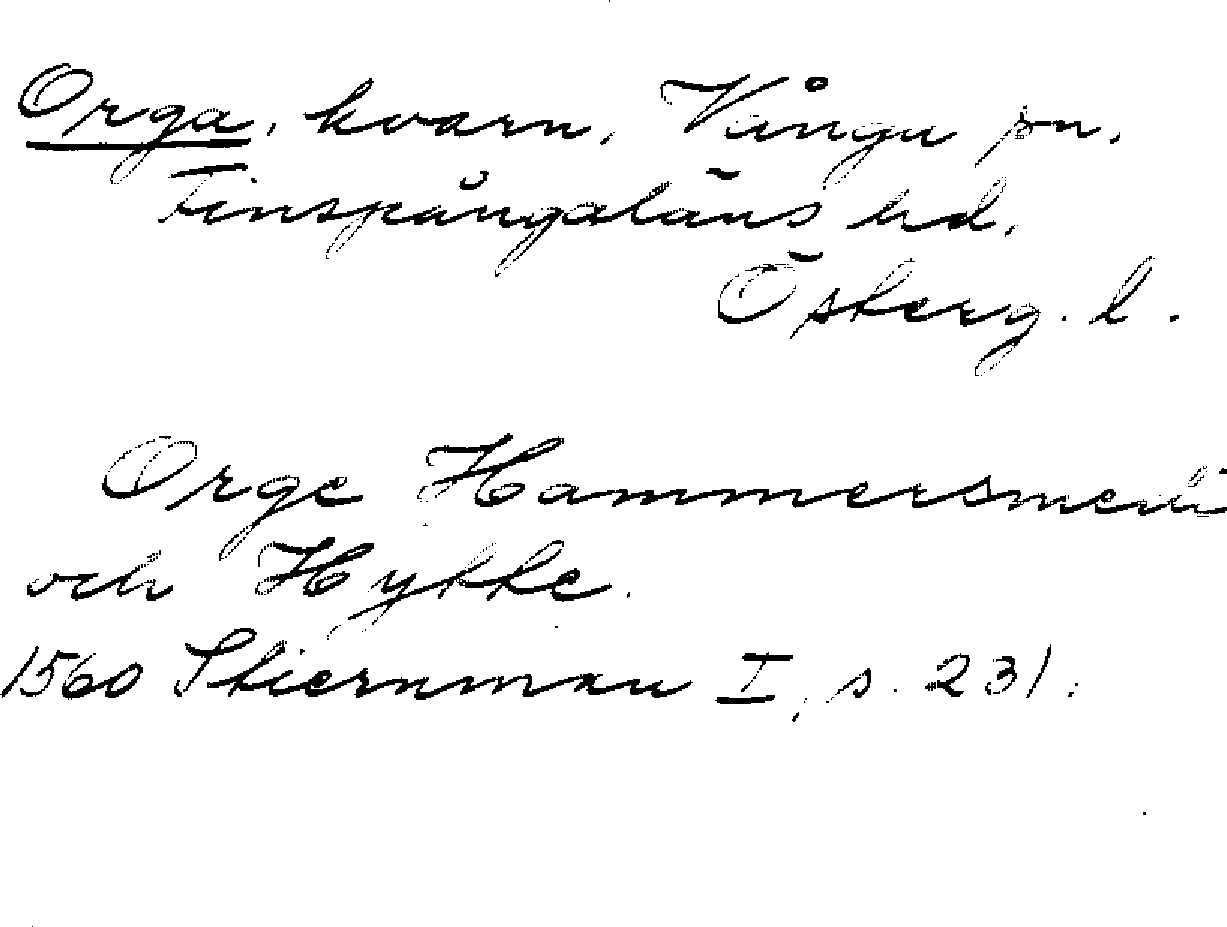 Orga, kvarn, Vånga sn,
Finspångaläns hd,
Österg. l.
Orge Hammersmedi
och Hykke.
1560 Stiernman I, s. 231.